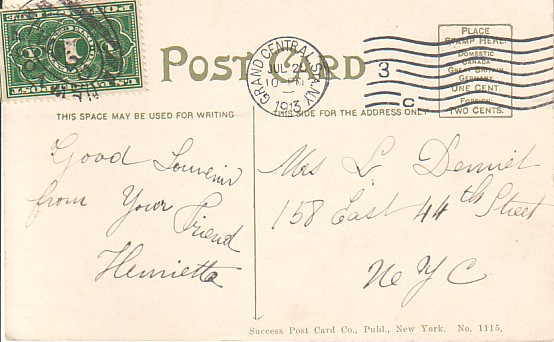 POST CARD
GRAND CENTRAL STA. N.Y.
JUL 2
10
1913
3
C
PLACE
STAMP HERE
DOMESTIC
CANADA
GREAT BRITAIN
GERMANY
ONE CENT.
FOREIGN
TWO CENTS.
THIS SPACE MAY BE USED FOR WRITING
THIS SIDE FOR THE ADDRESS ONLY
Good Souvenir
from Your Friend
Henrietta
Mrs L Demiel
158 East 44th Street
N Y C
Success Post Card Co., Publ., New York. No. 1115.